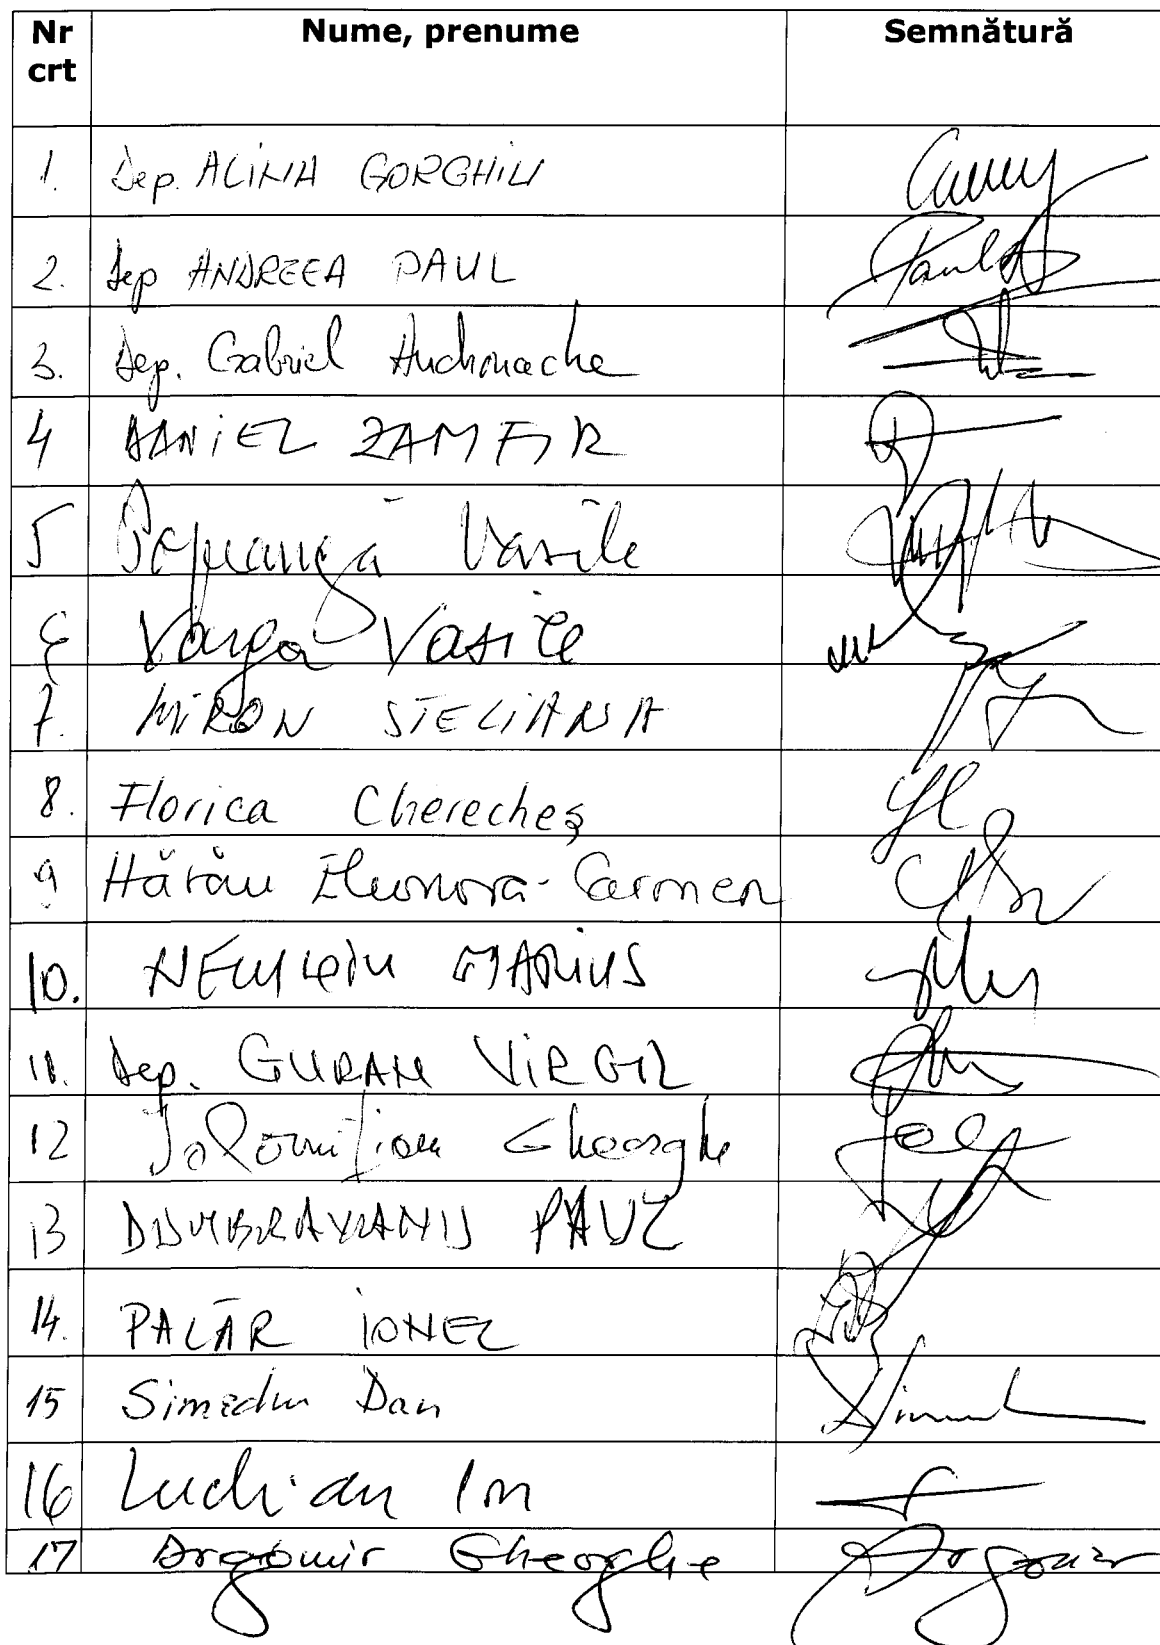 Nr crt Nume, prenume Semnătură
1. Dep. ALINA GORGHIU
2. Dep ANDREEA PAUL
3. Dep. Gabriel Andronache
4 DANIEL ZAMFIR
5 Popeangă Vasile
6 Varga Vasile
7. MIRON STELIANA
8. Florica Cherecheș
9 Hărău Eleonora-Carmen
10. MARIUS
11. Dep. GURAN VIRGIL
12 Ialomițianu Gheorghe
13 DUMBRAVANU PAUL
14. PALĂR IONEL
15 Simedru Dan
16 Luchian Ion
17 Dragomir Gheorghe